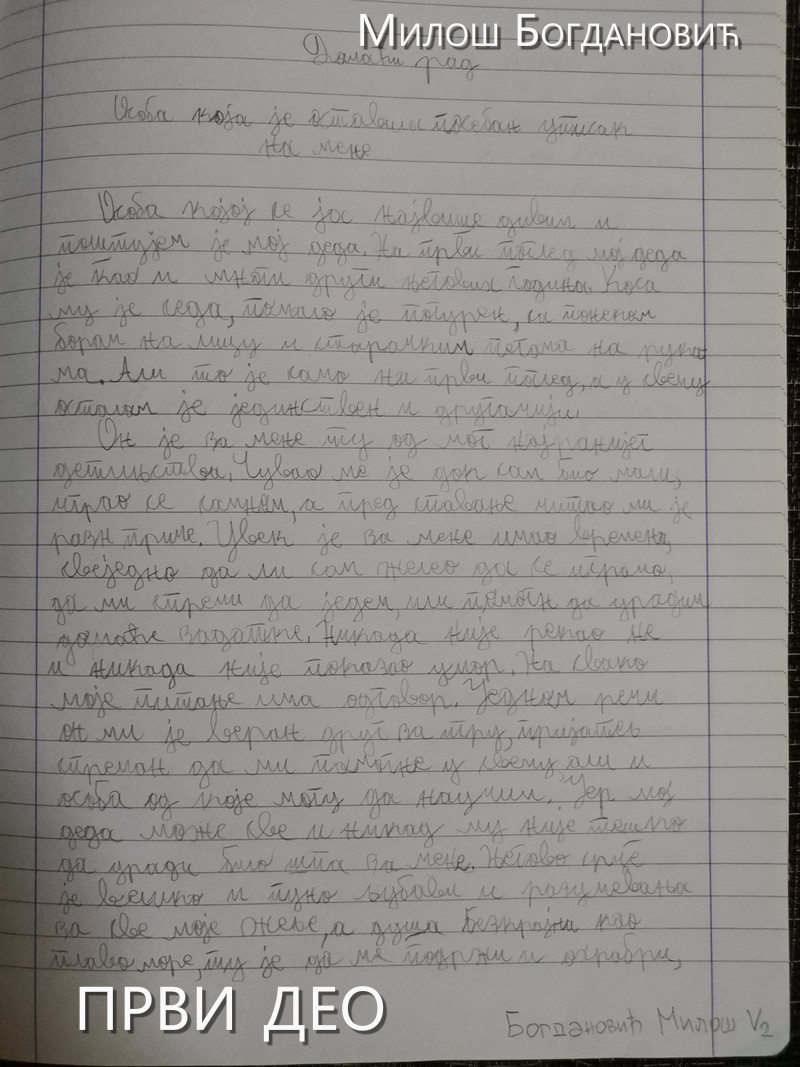 Милош Богдановић
Домаћи рад
Особа која је оставила посебан утисак
на мене
Особа којој се јас највише дивим и
поштујем је мој деда. На први поглед мој деда
је као и многи други његових година. Коса
му је седа, помало је погурен, са понеком
бором на лицу и старачким пегама на рука
ма. Али то је само на први поглед, а у свему
осталом је јединствен и другачији.
Он је за мене ту од мог најранијег
детињства. Чувао ме је док сам био мали,
играо се самном, а пред спавање читао ми је
разн приче. Увек је за мене имао времена,
свеједно да ли сам желео да се играмо,
да ми спреми да једем, или помогн да урадим
домаће задатке. Никада није рекао не
и никада није показао умор. На свако
моје питање има одговор. Једном речи
он ми је веран друг за игру, пријатељ
спреман да ми помогне у свему али и
особа од које могу да научим. Јер мој
деда може све и никад му није тешко
да уради било шта за мене. Његово срце
је велико и пуно љубави и разумевања
за све моје жеље, а душа бескрајна као
плаво море, ту је да ме подржи и охрабри,
ПРВИ ДЕО
Богдановић Милош V2